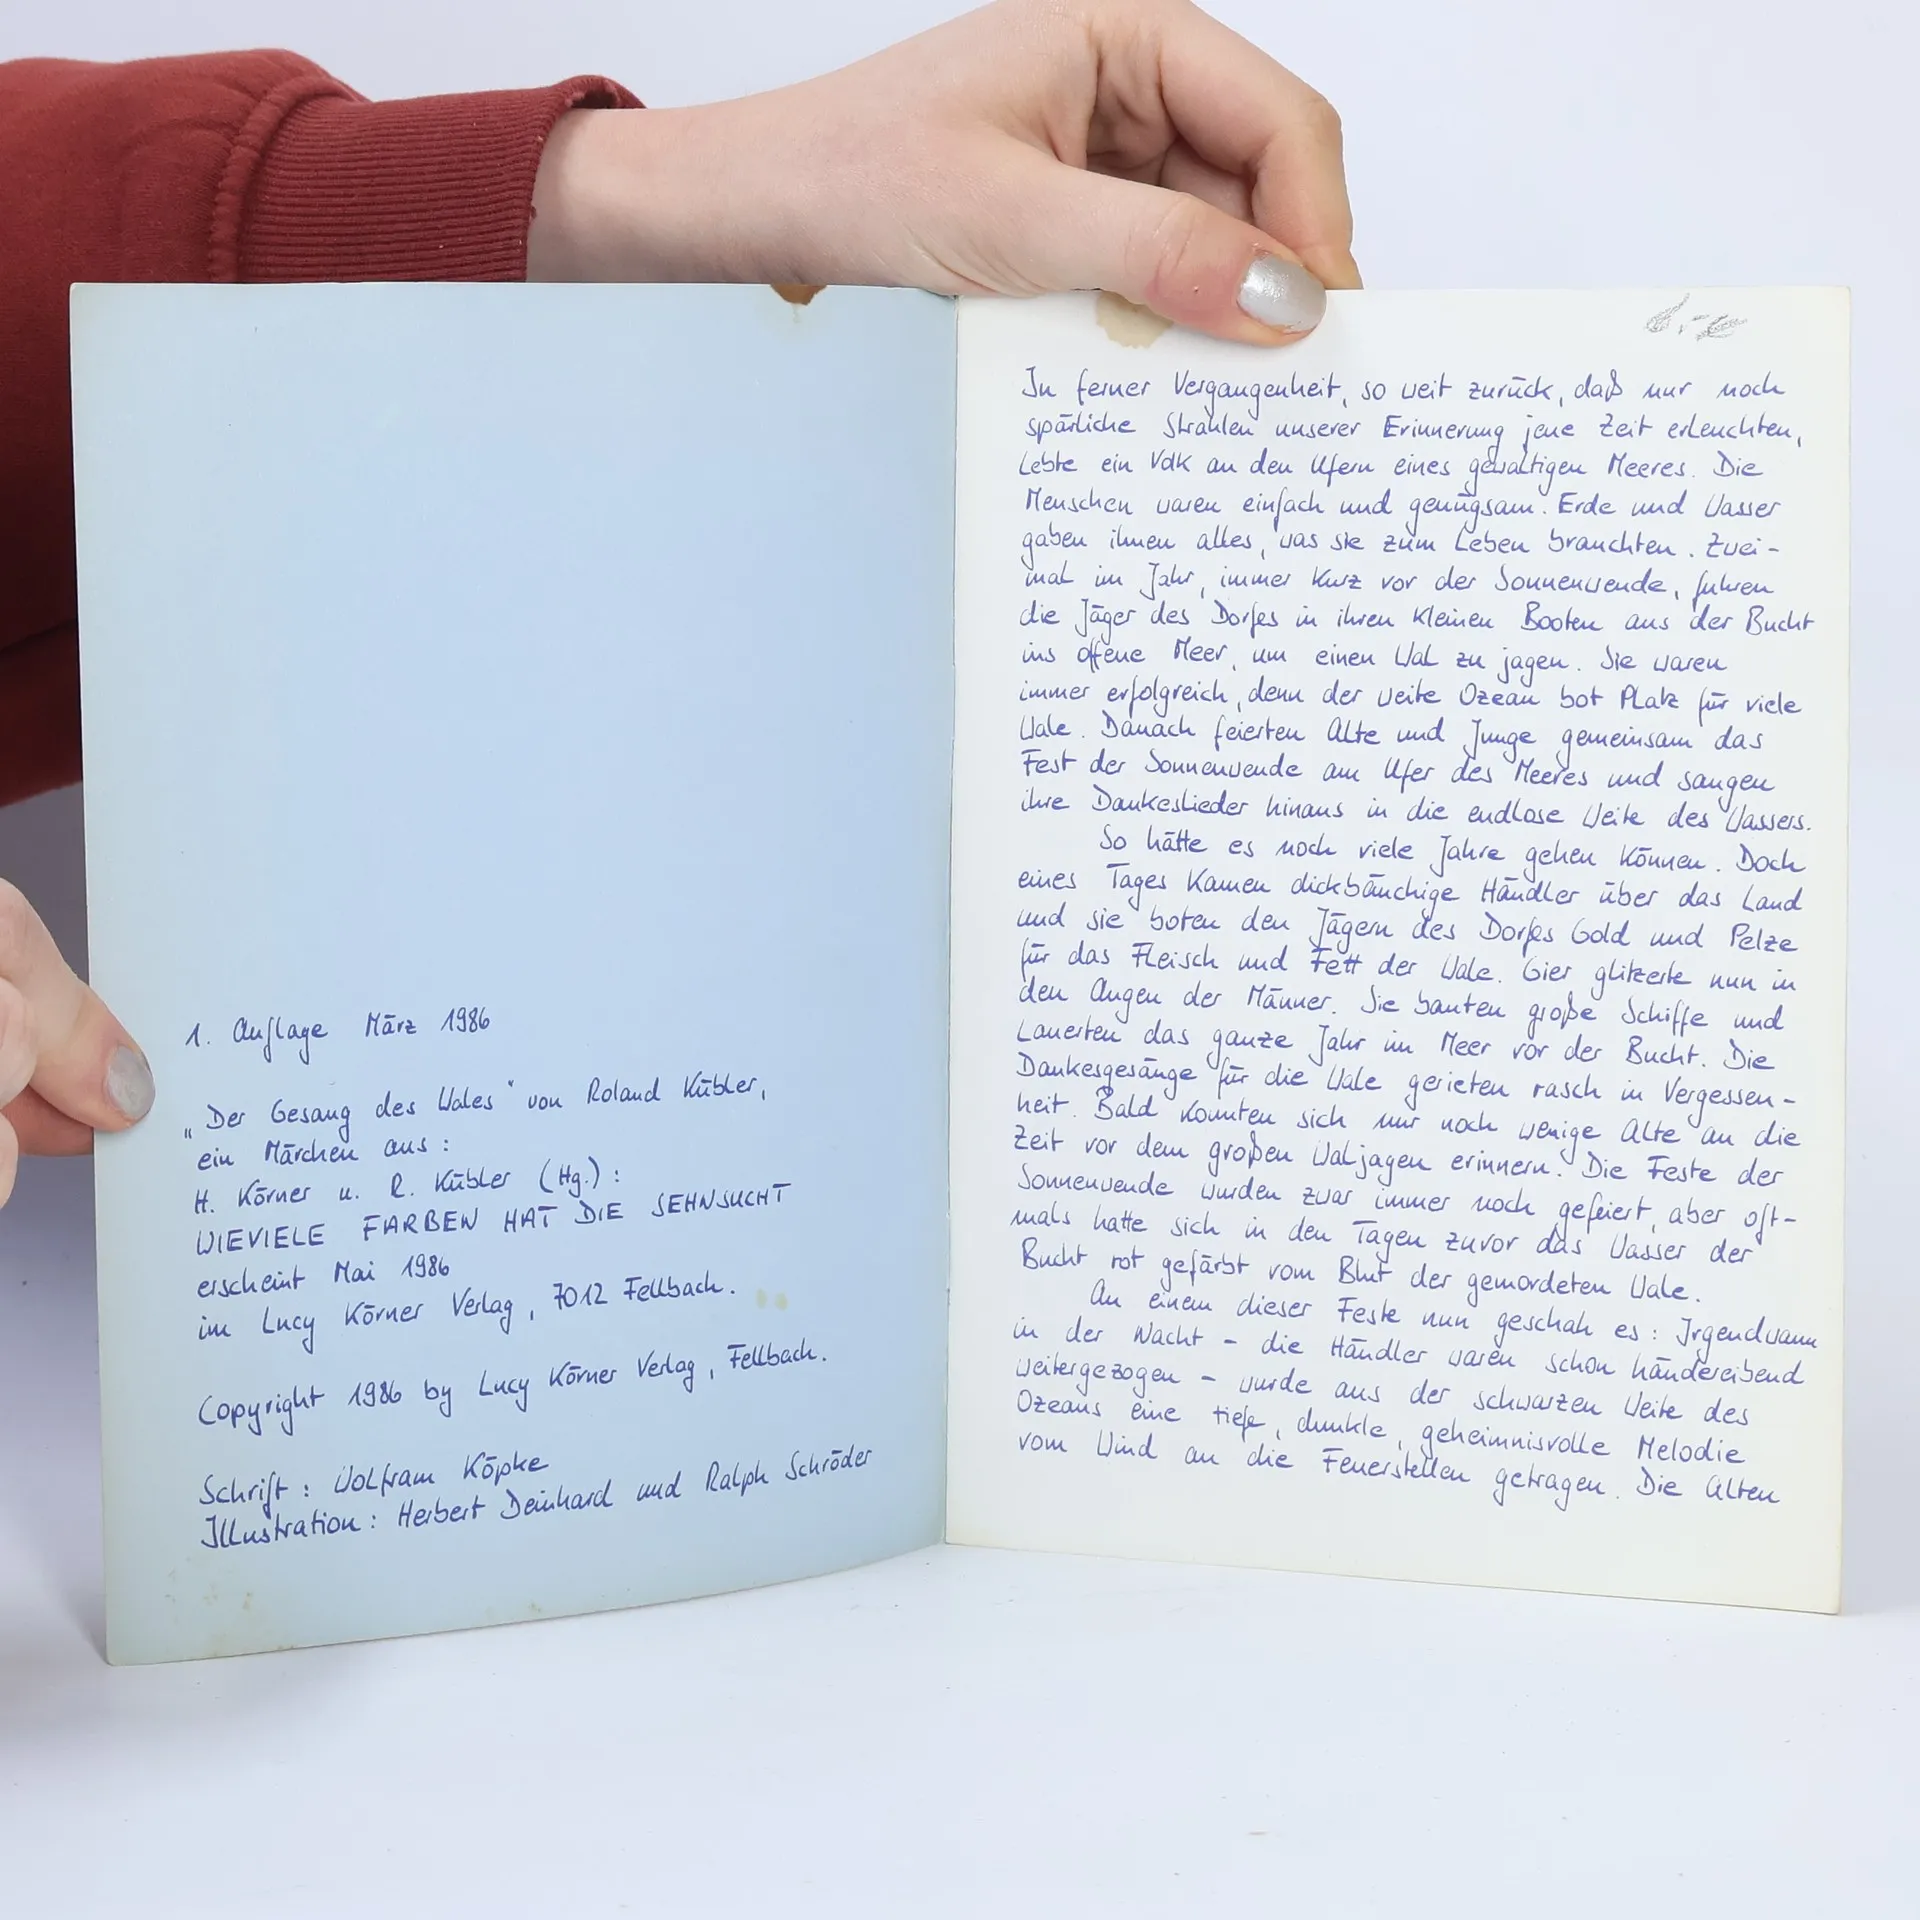 1. Auflage März 1986
„Der Gesang des Wales" von Roland Kübler,
ein Märchen aus:
H. Körner u. R. Kübler (Hg.):
WIEVIELE FARBEN HAT DIE SEHNSUCHT
erscheint Mai 1986
im Lucy Körner Verlag, 7012 Fellbach.
Copyright 1986 by Lucy Körner Verlag, Fellbach.
Schrift: Wolfram Köpke
Illustration: Herbert Deinhard und Ralph Schröder
In ferner Vergangenheit, so weit zurück, daß nur noch
spärliche Strahlen unserer Erinnerung jene Zeit erleuchten,
lebte ein Volk an den Ufern eines gewaltigen Meeres. Die
Menschen waren einfach und genügsam. Erde und Wasser
gaben ihnen alles, was sie zum Leben brauchten. Zwei-
mal im Jahr, immer kurz vor der Sonnenwende, fuhren
die Jäger des Dorfes in ihren kleinen Booten aus der Bucht
ins offene Meer, um einen Wal zu jagen. Sie waren
immer erfolgreich, denn der weite Ozean bot Platz für viele
Wale. Danach feierten Alte und Junge gemeinsam das
Fest der Sonnenwende am Ufer des Meeres und sangen
ihre Dankeslieder hinaus in die endlose Weite des Wassers.
So hätte es noch viele Jahre gehen können. Doch
eines Tages kamen dickbäuchige Händler über das Land
und sie boten den Jägern des Dorfes Gold und Pelze
für das Fleisch und Fett der Wale. Gier glitzerte nun in
den Augen der Männer. Sie bauten große Schiffe und
lauerten das ganze Jahr im Meer vor der Bucht. Die
Dankesgesänge für die Wale gerieten rasch in Vergessen-
heit. Bald konnten sich nur noch wenige Alte an die
Zeit vor dem großen Waljagen erinnern. Die Feste der
Sonnenwende wurden zwar immer noch gefeiert, aber oft-
mals hatte sich in den Tagen zuvor das Wasser der
Bucht rot gefärbt vom Blut der gemordeten Wale.
An einem dieser Feste nun geschah es: Irgendwann
in der Nacht - die Händler waren schon händereibend
weitergezogen - wurde aus der schwarzen Weite des
Ozeans eine tiefe, dunkle, geheimnisvolle Melodie
vom Wind an die Feuerstellen getragen. Die Alten